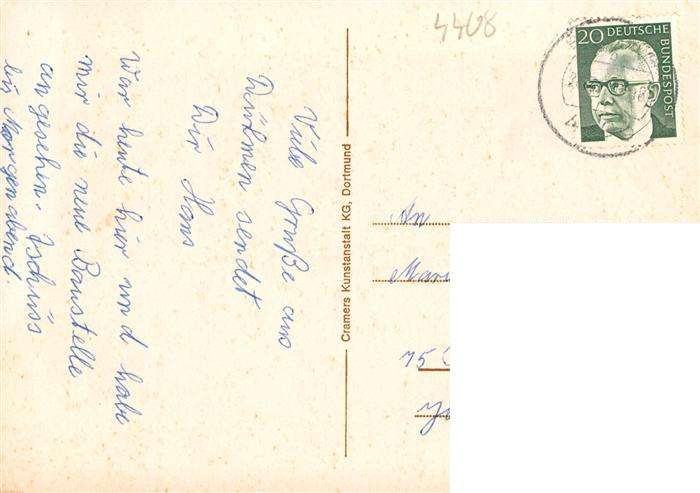 4408
20 DEUTSCHE BUNDESPOST
Viele Grüße aus
Dülmen sendet
Dir Hans
War heute hier und habe
mir die neue Baustelle
angesehen. Tschüss
bis Morgenabend.
Cramers Kunstanstalt KG, Dortmund
An
75